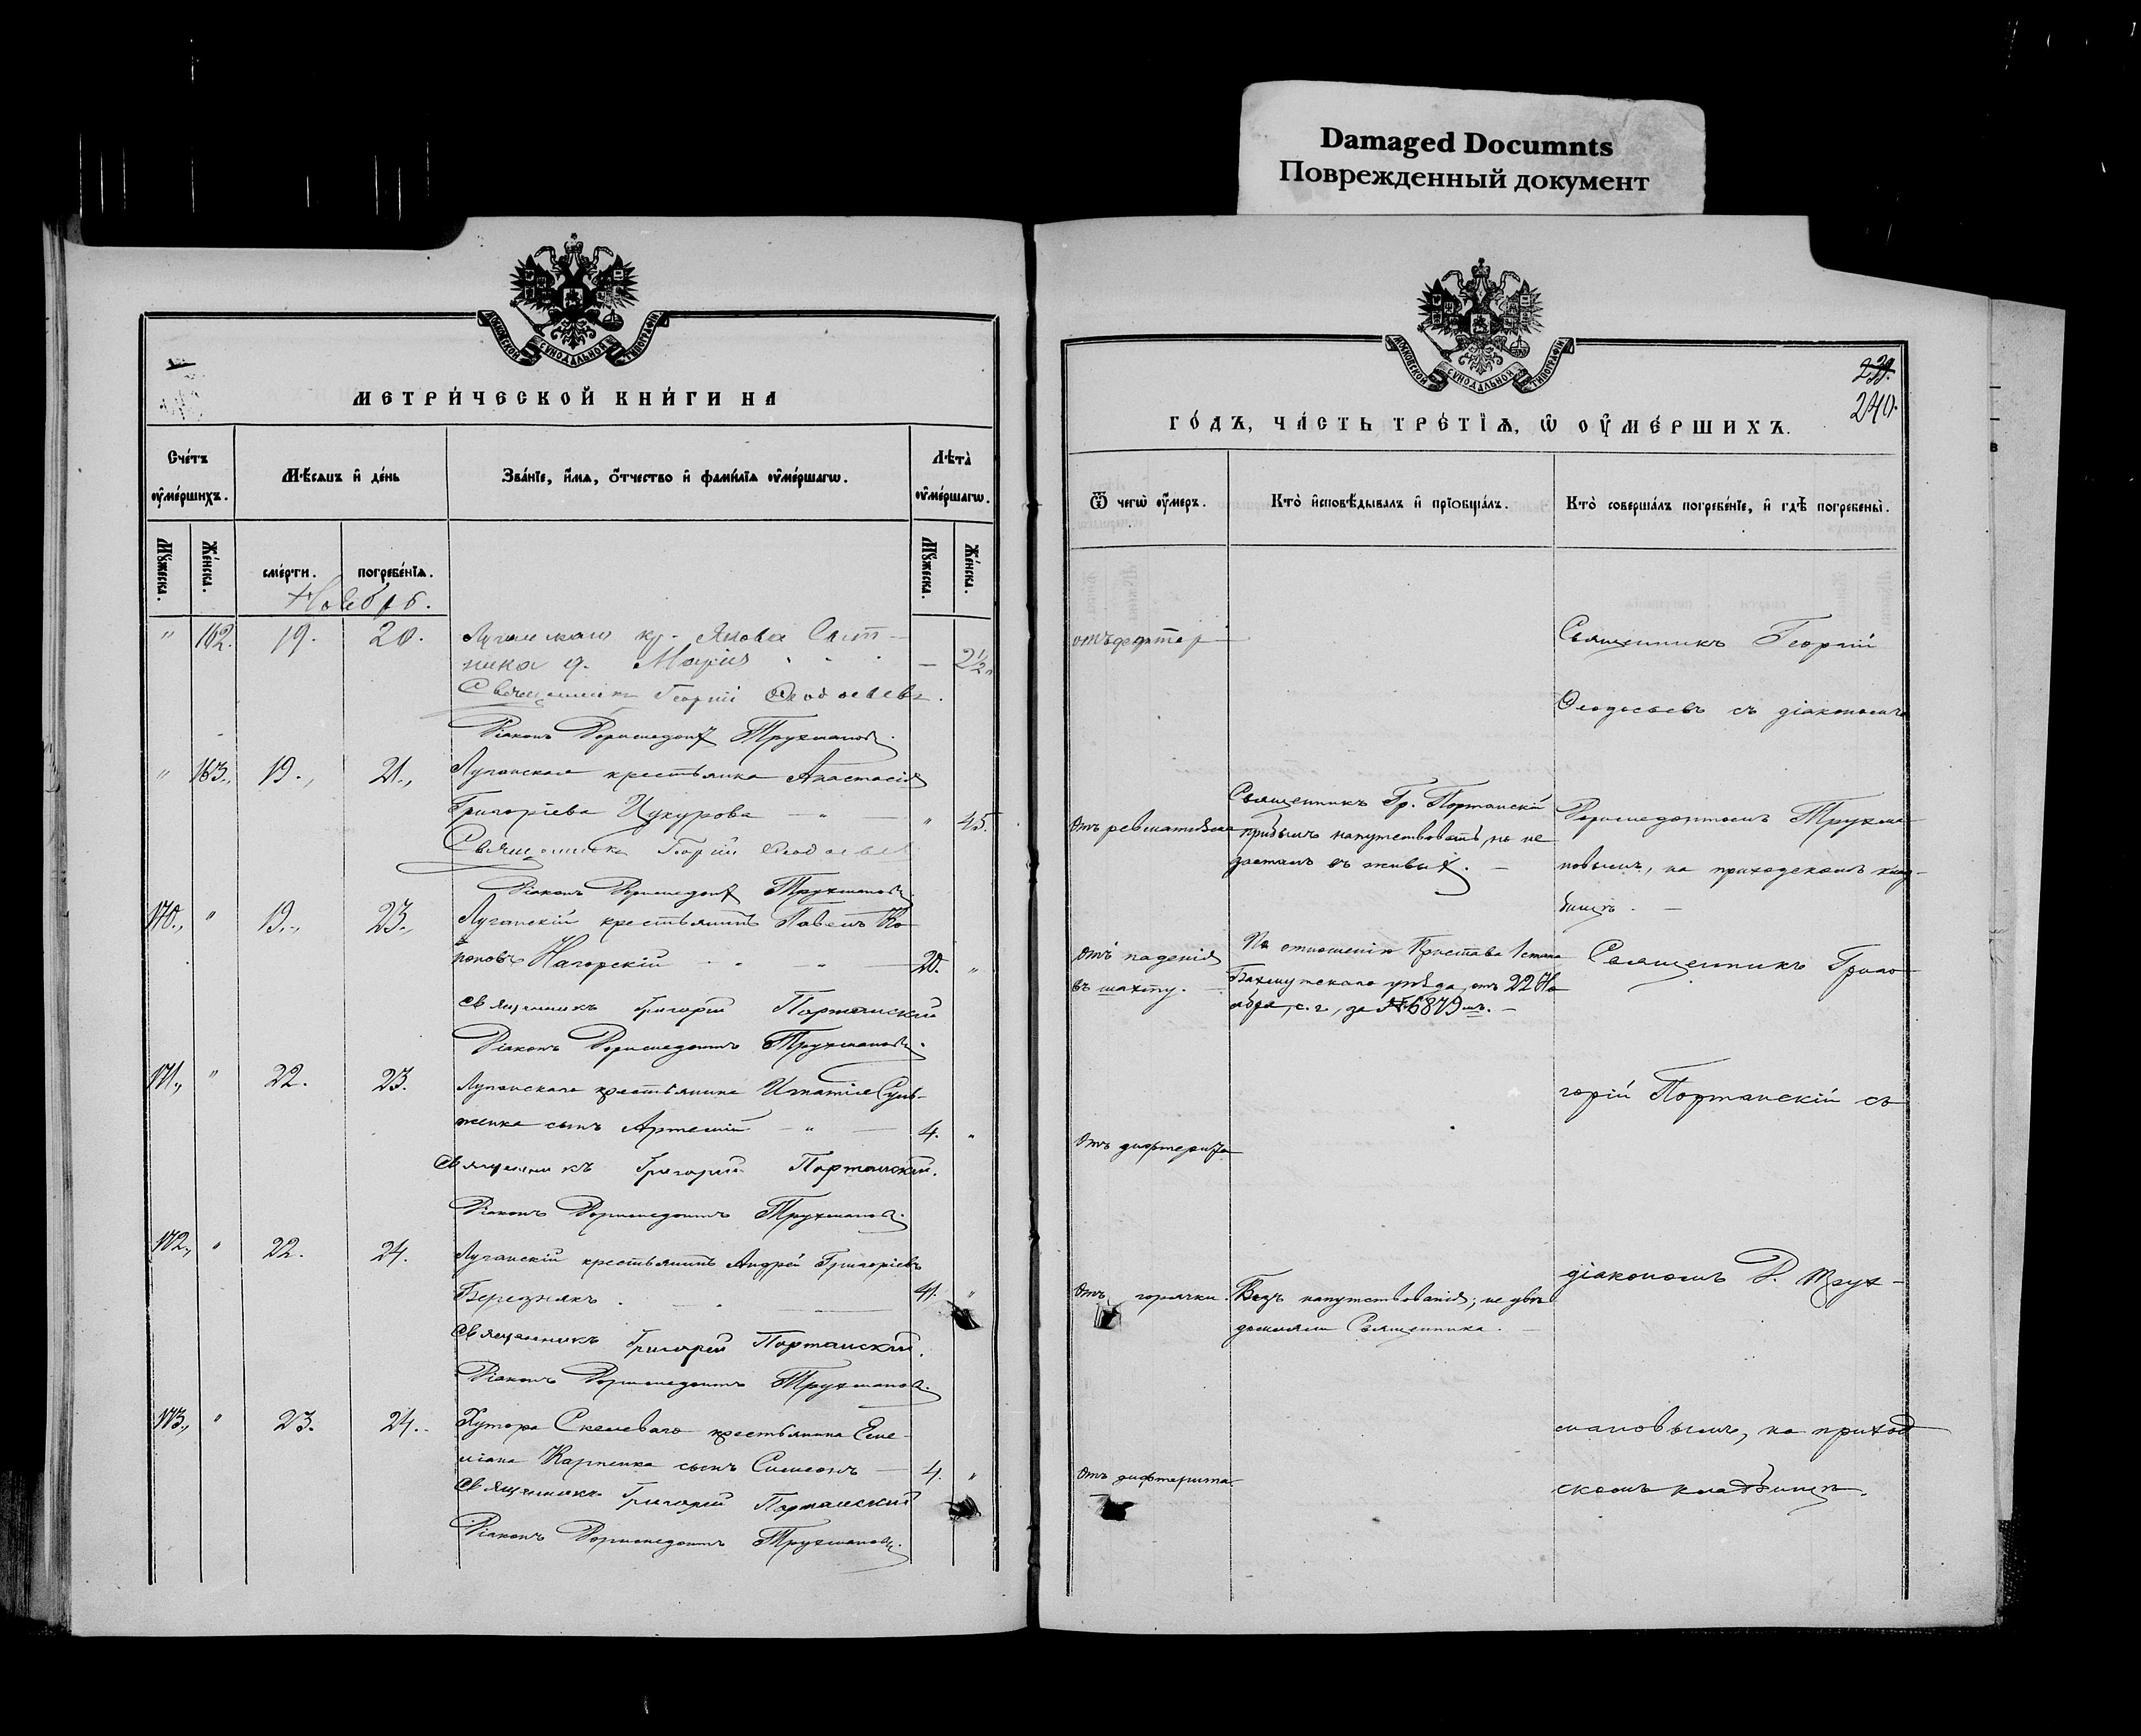 Damaged Documnts
Поврежденный документ
МОСКОВСКОЙ СѴНОДАЛЬНОЙ ТИПОГРАФІИ
МЕТРИ́ЧЕСКОЙ КНИ́ГИ НА
Сче́тъ ᲂу҆ме́ршихъ.
Мѣ́сяцъ и҆ де́нь
Зва́нїе, и҆́мѧ, ѻ҆́тчество и҆ фами́лїѧ ᲂу҆ме́ршагѡ.
Лѣ́та ᲂу҆ме́ршагѡ.
Мꙋ́жеска.
Же́нска.
сме́рти.
погребе́нїѧ.
Мꙋ́жеска.
Же́нска.
Ноябрь.
" 162. 19. 20. Луганскаго кр. Якова Сит-
ника д. Марія — 2½
Священникъ Георгій Ѳеодосьевъ.
Діаконъ Доримедонт Трухмановъ.
" 163., 19., 21., Луганская крестьянка Анастасія
Григоріева Цукурова — " — " 45.
Священникъ Георгій Ѳеодосьев
Діаконъ Доримедонт Трухмановъ.
170., " 19., 23., Луганскій крестьянинъ Павелъ Ко-
ноновъ Нагорскій — " — 20. "
Священникъ Григорій Портанскій
Діаконъ Доримедонтъ Трухмановъ.
171., " 22. 23. Луганскаго крестьянина Игнатія Суль-
женка сынъ Артемій — " — 4. "
Священникъ Григорій Портанскій.
Діаконъ Доримедонтъ Трухмановъ.
172., " 22. 24. Луганскій крестьянинъ Андрей Григоріевъ
Березнякъ. — 41. "
Священникъ Григорій Портанскій.
Діаконъ Доримедонтъ Трухмановъ.
173., " 23. 24. Хутора Скелеваго крестьянина Еме-
ліана Карпенка сынъ Симеонъ — 4. "
Священникъ Григорій Портанскій
Діаконъ Доримедонтъ Трухмановъ.
МОСКОВСКОЙ СѴНОДАЛЬНОЙ ТИПОГРАФІИ
239.
240.
ГО́ДЪ, ЧА́СТЬ ТРЕ́ТЇѦ, Ѡ҆ ОУ҆МЕ́РШИХЪ.
Ѿ чегѡ̀ ᲂу҆́меръ.
Кто̀ и҆сповѣ́дывалъ и҆ прїѻбща́лъ.
Кто̀ соверша́лъ погребе́нїе, и҆ гдѣ̀ погребены̀.
Священникъ Георгій
Ѳеодосьевъ съ діакономъ
Отъ ревматизма
Священникъ Гр. Портанскій
прибылъ напутствовать, но не
засталъ въ живых. —
Доримедонтомъ Трухма-
новымъ, на приходскомъ клад-
бищѣ. —
Отъ паденія
въ шахту. —
По отношенію Пристава 1 стана
Бахмутскаго уѣзда, отъ 22 Но-
ября, с. г., за № 6879 мъ. —
Священникъ Григо-
горій Портанскій съ
Отъ дифтерита
діакономъ Д. Трух-
Отъ горячки. Безъ напутствованія; не увѣ-
домляли Священника. —
мановымъ, на приход
Отъ дифтерита
скомъ кладбищѣ.